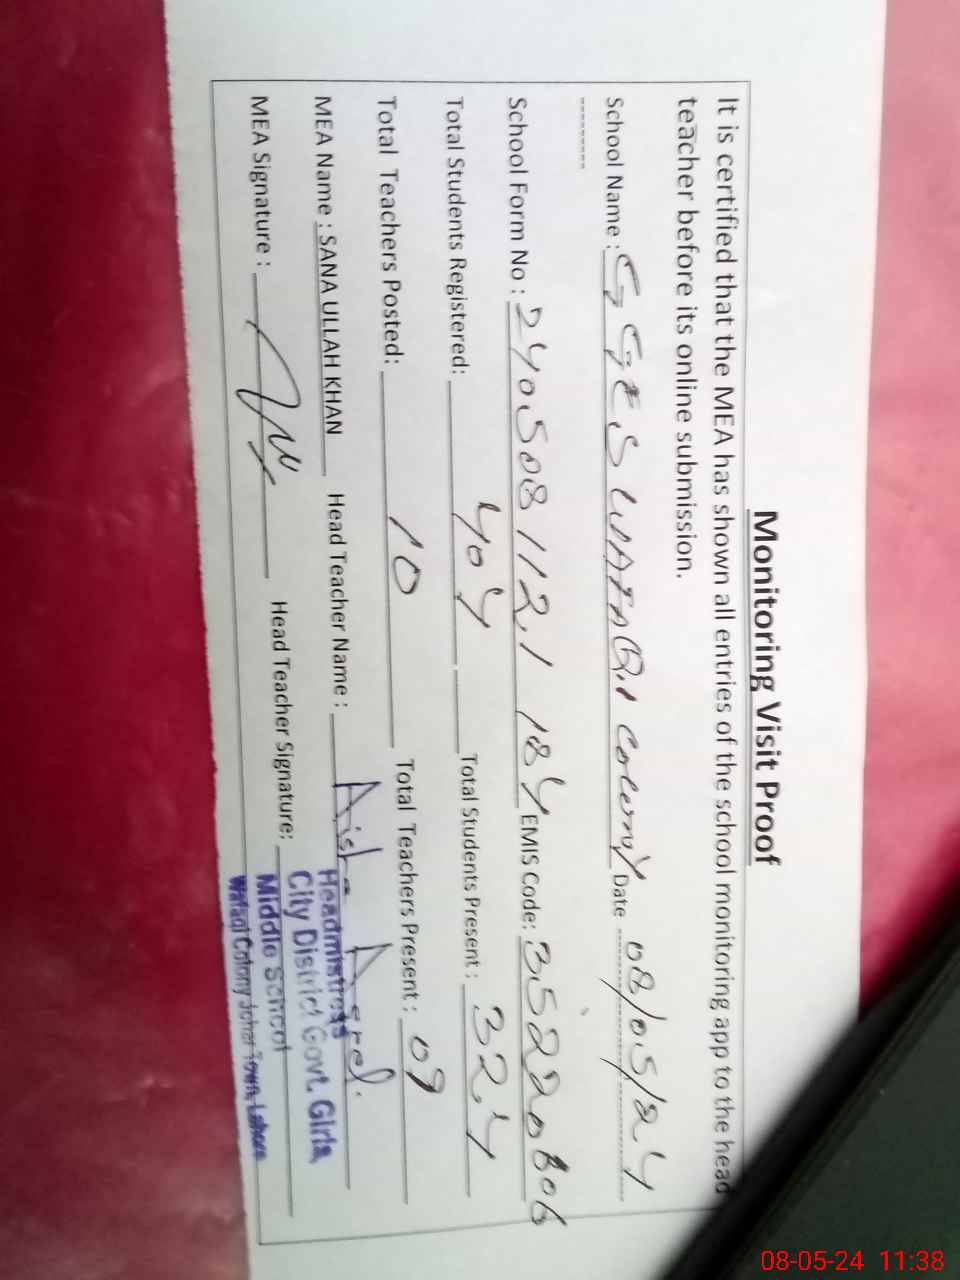 Monitoring Visit Proof
It is certified that the MEA has shown all entries of the school monitoring app to the head
teacher before its online submission.
School Name : GGES WAFAQI COLONY Date 08/05/24
School Form No : 2405081121184 EMIS Code: 35220806
Total Students Registered: 404 Total Students Present : 324
Total Teachers Posted: 10 Total Teachers Present : 09
MEA Name : SANA ULLAH KHAN Head Teacher Name : Aisha
MEA Signature : Head Teacher Signature:
Headmistress
City District Govt. Girls,
Middle School
Wafaqi Colony Johar Town, Lahore
08-05-24 11:38